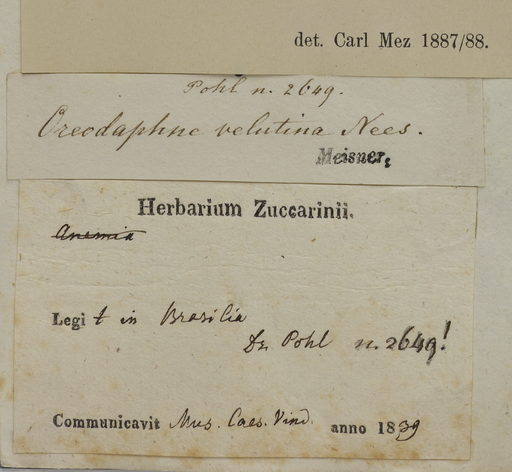 det. Carl Mez 1887/88.
Pohl n. 2649.
Oreodaphne velutina Nees.
Meisner.
Herbarium Zuccarinii.
Anemia
Legit in Brasilia
Dr. Pohl n. 2649!
Communicavit Mus. Caes. Vind. anno 1839